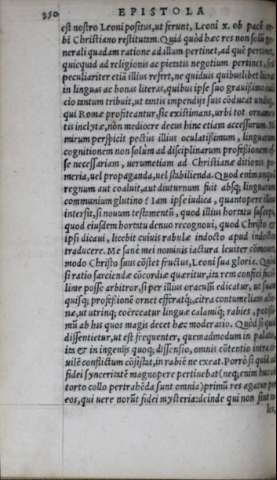 350 EPISTOLA
est nostro Leoni positus, ut ferunt, Leoni x. ob pacē or
bi Christiano restitutam. Quid quòd hæc res non solū ge
nerali quadam ratione ad illum pertinet, ad quē pertinet
quicquid ad religionis ac pietatis negotium pertinet, sed
peculiariter etiā illius refert, ne quidius quibuslibet
in linguas ac bonas literas, quibus ipse suo grauissimo iudi
cio tantum tribuit, ut tantis impendijs suis cōducat undi
qui Romæ profiteantur, sic existimans, urbi tot ornamen
tis inclytæ, non mediocre decus hinc etiam accessurum.
mirum perspicit pectus illius oculatissimum, linguarum
cognitionem non solum ad disciplinarum professionem es
se necessariam, uerumetiam ad Christianæ ditionis po
meria, uel propaganda, uel stabilienda. Quod enim unquā
regnum aut coaluit, aut diuturnum fuit absq; linguarum
communium glutino? Iam ipse iudica, quantopere illius
intersit, si nouum testamentū, quod illius hortatu suscepi,
quod eiusdem hortatu denuo recognoui, quod Christo &
ipsi dicaui, licebit cuiuis rabulæ indocto apud indoctos
traducere. Me sanè mei nominis iactura leuiter cōmouet,
modo Christo suus cōstet fructus, Leoni sua gloria. Quod
si ratio sarciendæ cōcordiæ quæritur, ita rem confici
posse arbitror, si per illius oraculū edicatur, ut suam
quisq; professionē ornet efferatq;, citra contumeliam alie
næ, ut utrinq; coërceatur linguæ calamiq; rabies, potissi
mū ab his quos magis decet hæc moderatio. Quòd si quid
dissentietur, ut est frequenter, quemadmodum in palatis,
ita & in ingenijs quoq; dissensio, omnis cōtentio intra ci
uilē conflictum cōsistat, in rabiē ne exeat. Porrò si quid ad
fidei synceritatē magnopere pertinebat (neq; enim huc ob
torto collo pertrahēda sunt omnia) primū res agatur per
eos, qui uere norūt fidei mysteria: deinde qui non sint